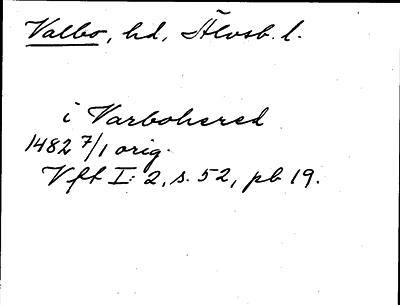 Valbo, hd, Älvsb. l.
i Varbohered
1482 7/1 orig.
Vft I: 2, s. 52, pb 19.